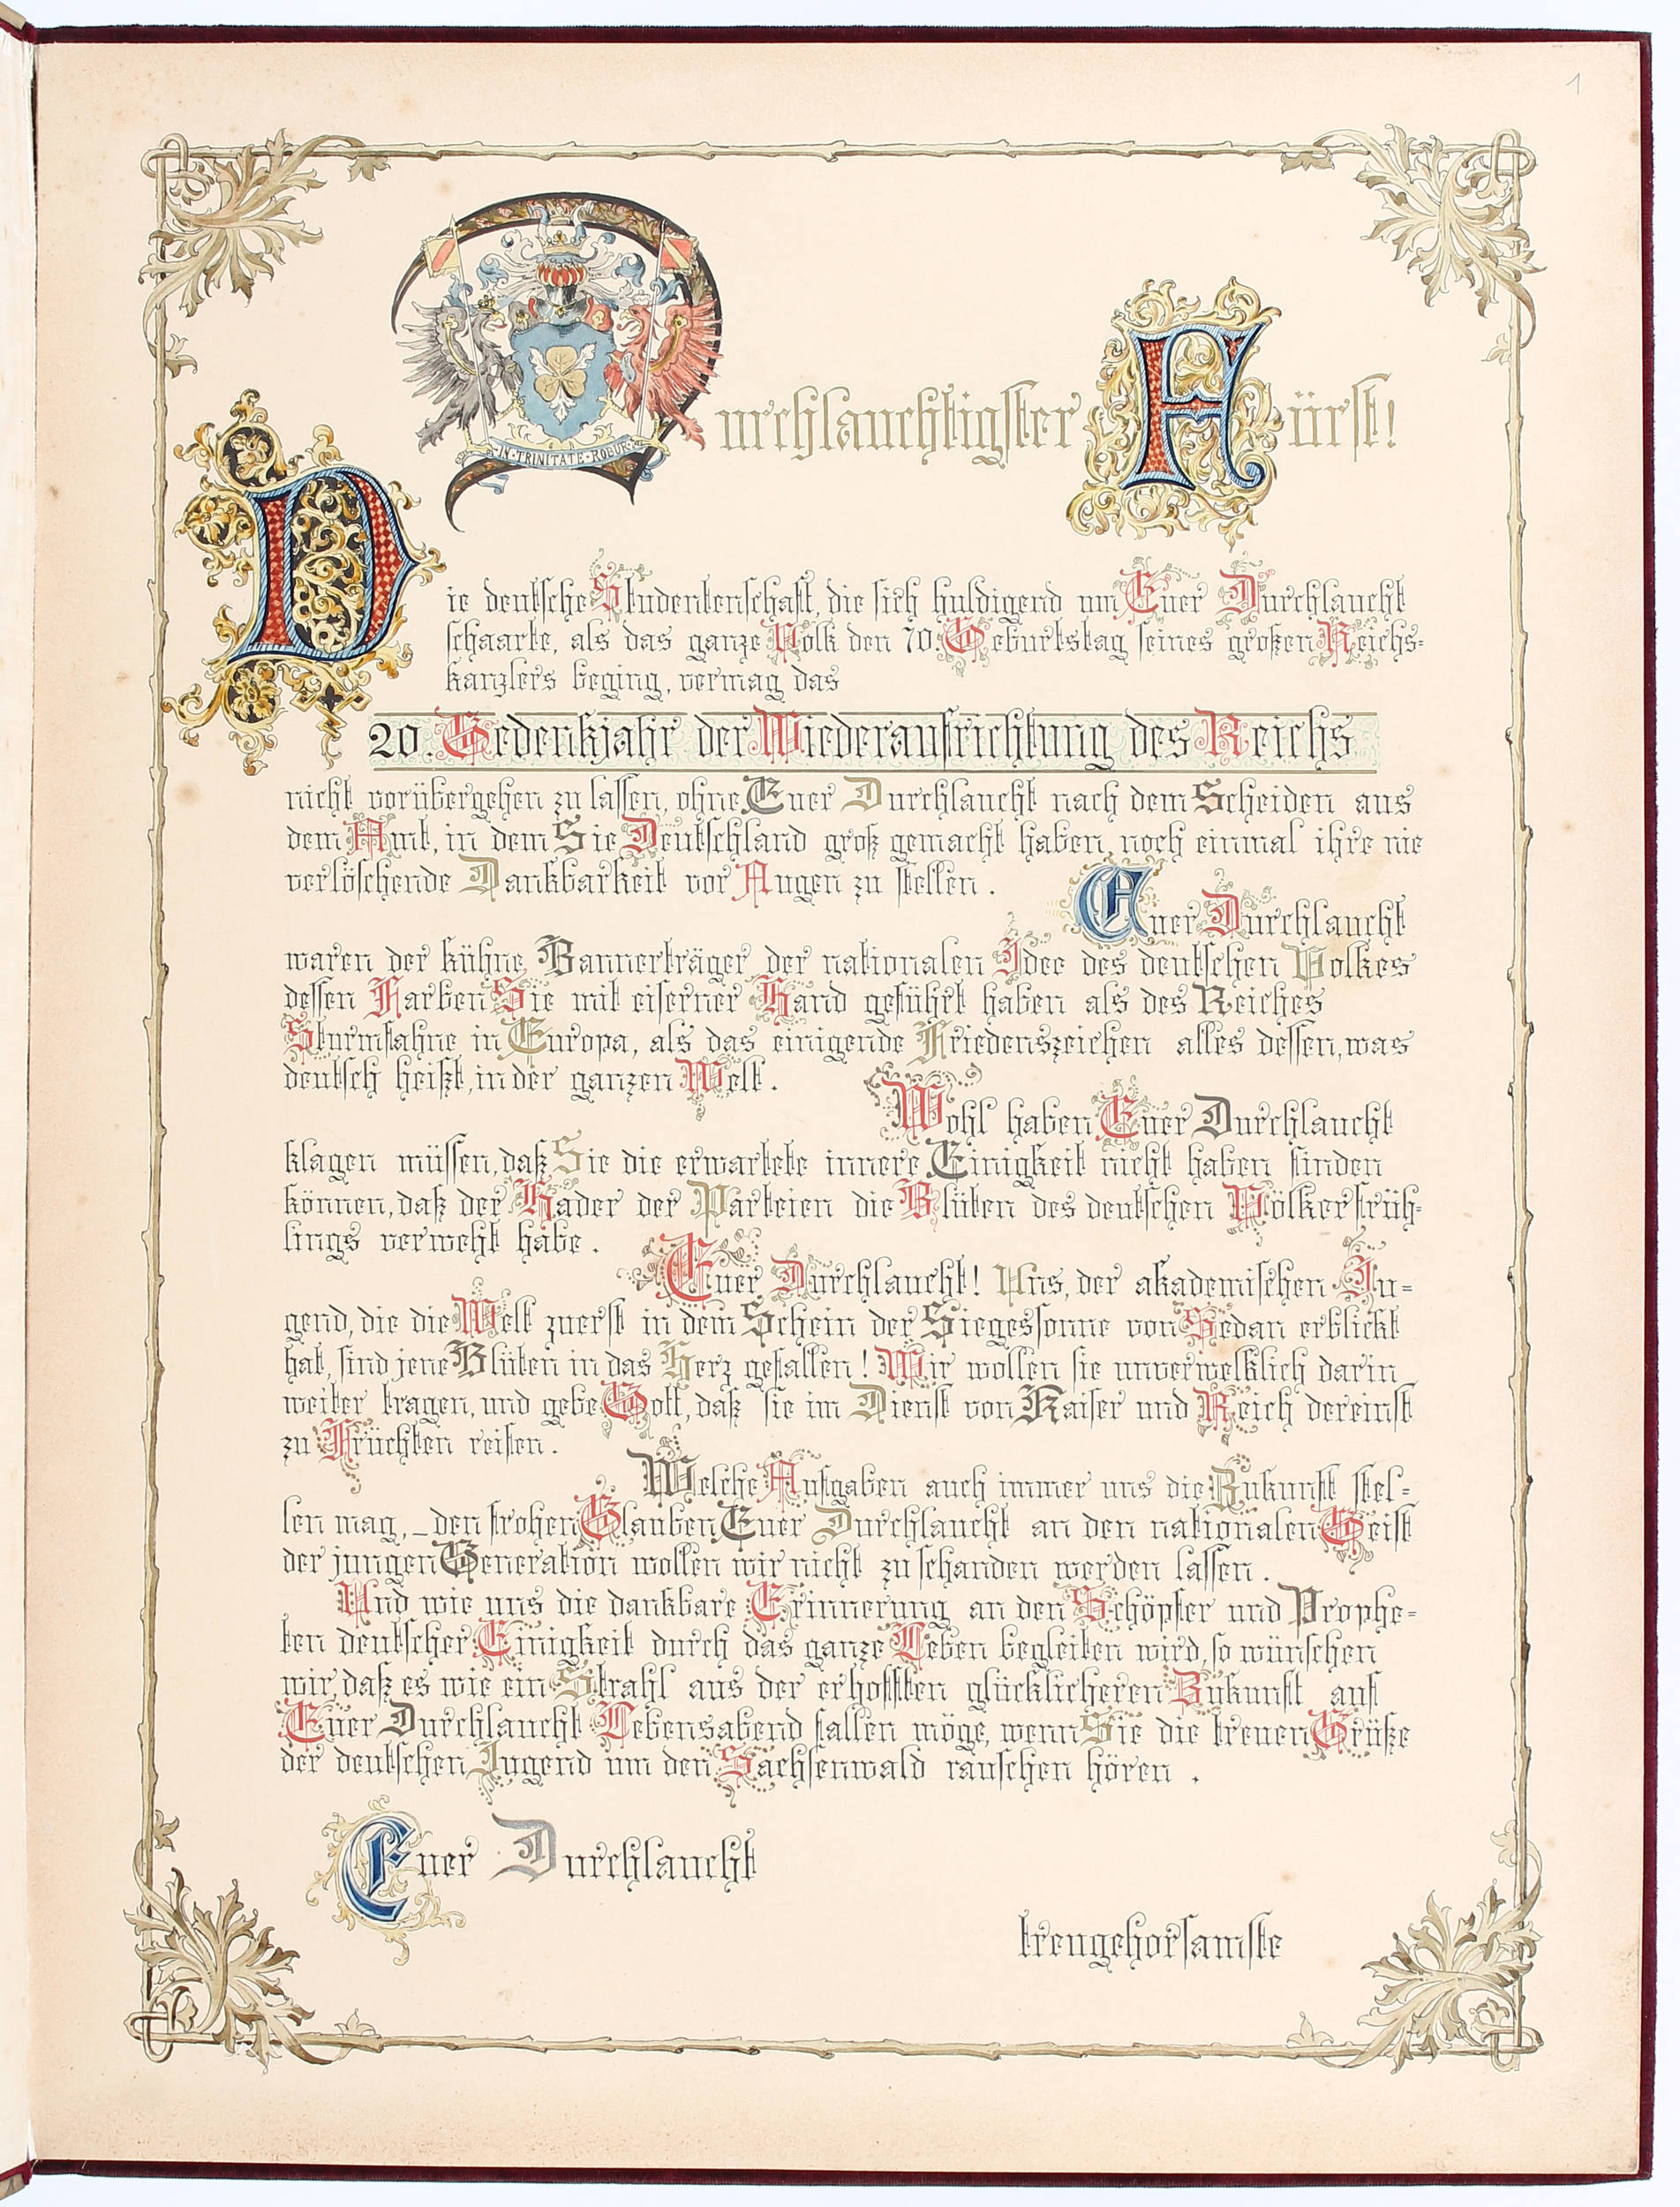 1
IN · TRINITATE · ROBUR ·
Durchlauchtigster Fürst!
Die deutsche Studentenschaft, die sich huldigend um Euer Durchlaucht
schaarte, als das ganze Volk den 70. Geburtstag seines großen Reichs-
kanzlers beging, vermag das
20. Gedenkjahr der Wiederaufrichtung des Reichs
nicht vorübergehen zu lassen, ohne Euer Durchlaucht nach dem Scheiden aus
dem Amt, in dem Sie Deutschland groß gemacht haben, noch einmal ihre nie
verlöschende Dankbarkeit vor Augen zu stellen.
Euer Durchlaucht
waren der kühne Bannerträger der nationalen Idee des deutschen Volkes
dessen Farben Sie mit eiserner Hand geführt haben als des Reiches
Sturmfahne in Europa, als das einigende Friedenszeichen alles dessen, was
deutsch heißt, in der ganzen Welt.
Wohl haben Euer Durchlaucht
klagen müssen, daß Sie die erwartete innere Einigkeit nicht haben finden
können, daß der Hader der Parteien die Blüten des deutschen Völkerfrüh-
lings verweht habe.
Euer Durchlaucht! Uns, der akademischen Ju-
gend, die die Welt zuerst in dem Schein der Siegessonne von Sedan erblickt
hat, sind jene Blüten in das Herz gefallen! Wir wollen sie unverwelklich darin
weiter tragen, und gebe Gott, daß sie im Dienst von Kaiser und Reich dereinst
zu Früchten reifen.
Welche Aufgaben auch immer uns die Zukunft stel-
len mag, – den frohen Glauben Euer Durchlaucht an den nationalen Geist
der jungen Generation wollen wir nicht zu schanden werden lassen.
Und wie uns die dankbare Erinnerung an den Schöpfer und Prophe-
ten deutscher Einigkeit durch das ganze Leben begleiten wird, so wünschen
wir, daß es wie ein Strahl aus der erhofften glücklicheren Zukunft auf
Euer Durchlaucht Lebensabend fallen möge, wenn Sie die treuen Grüße
der deutschen Jugend um den Sachsenwald rauschen hören.
Euer Durchlaucht
treugehorsamste